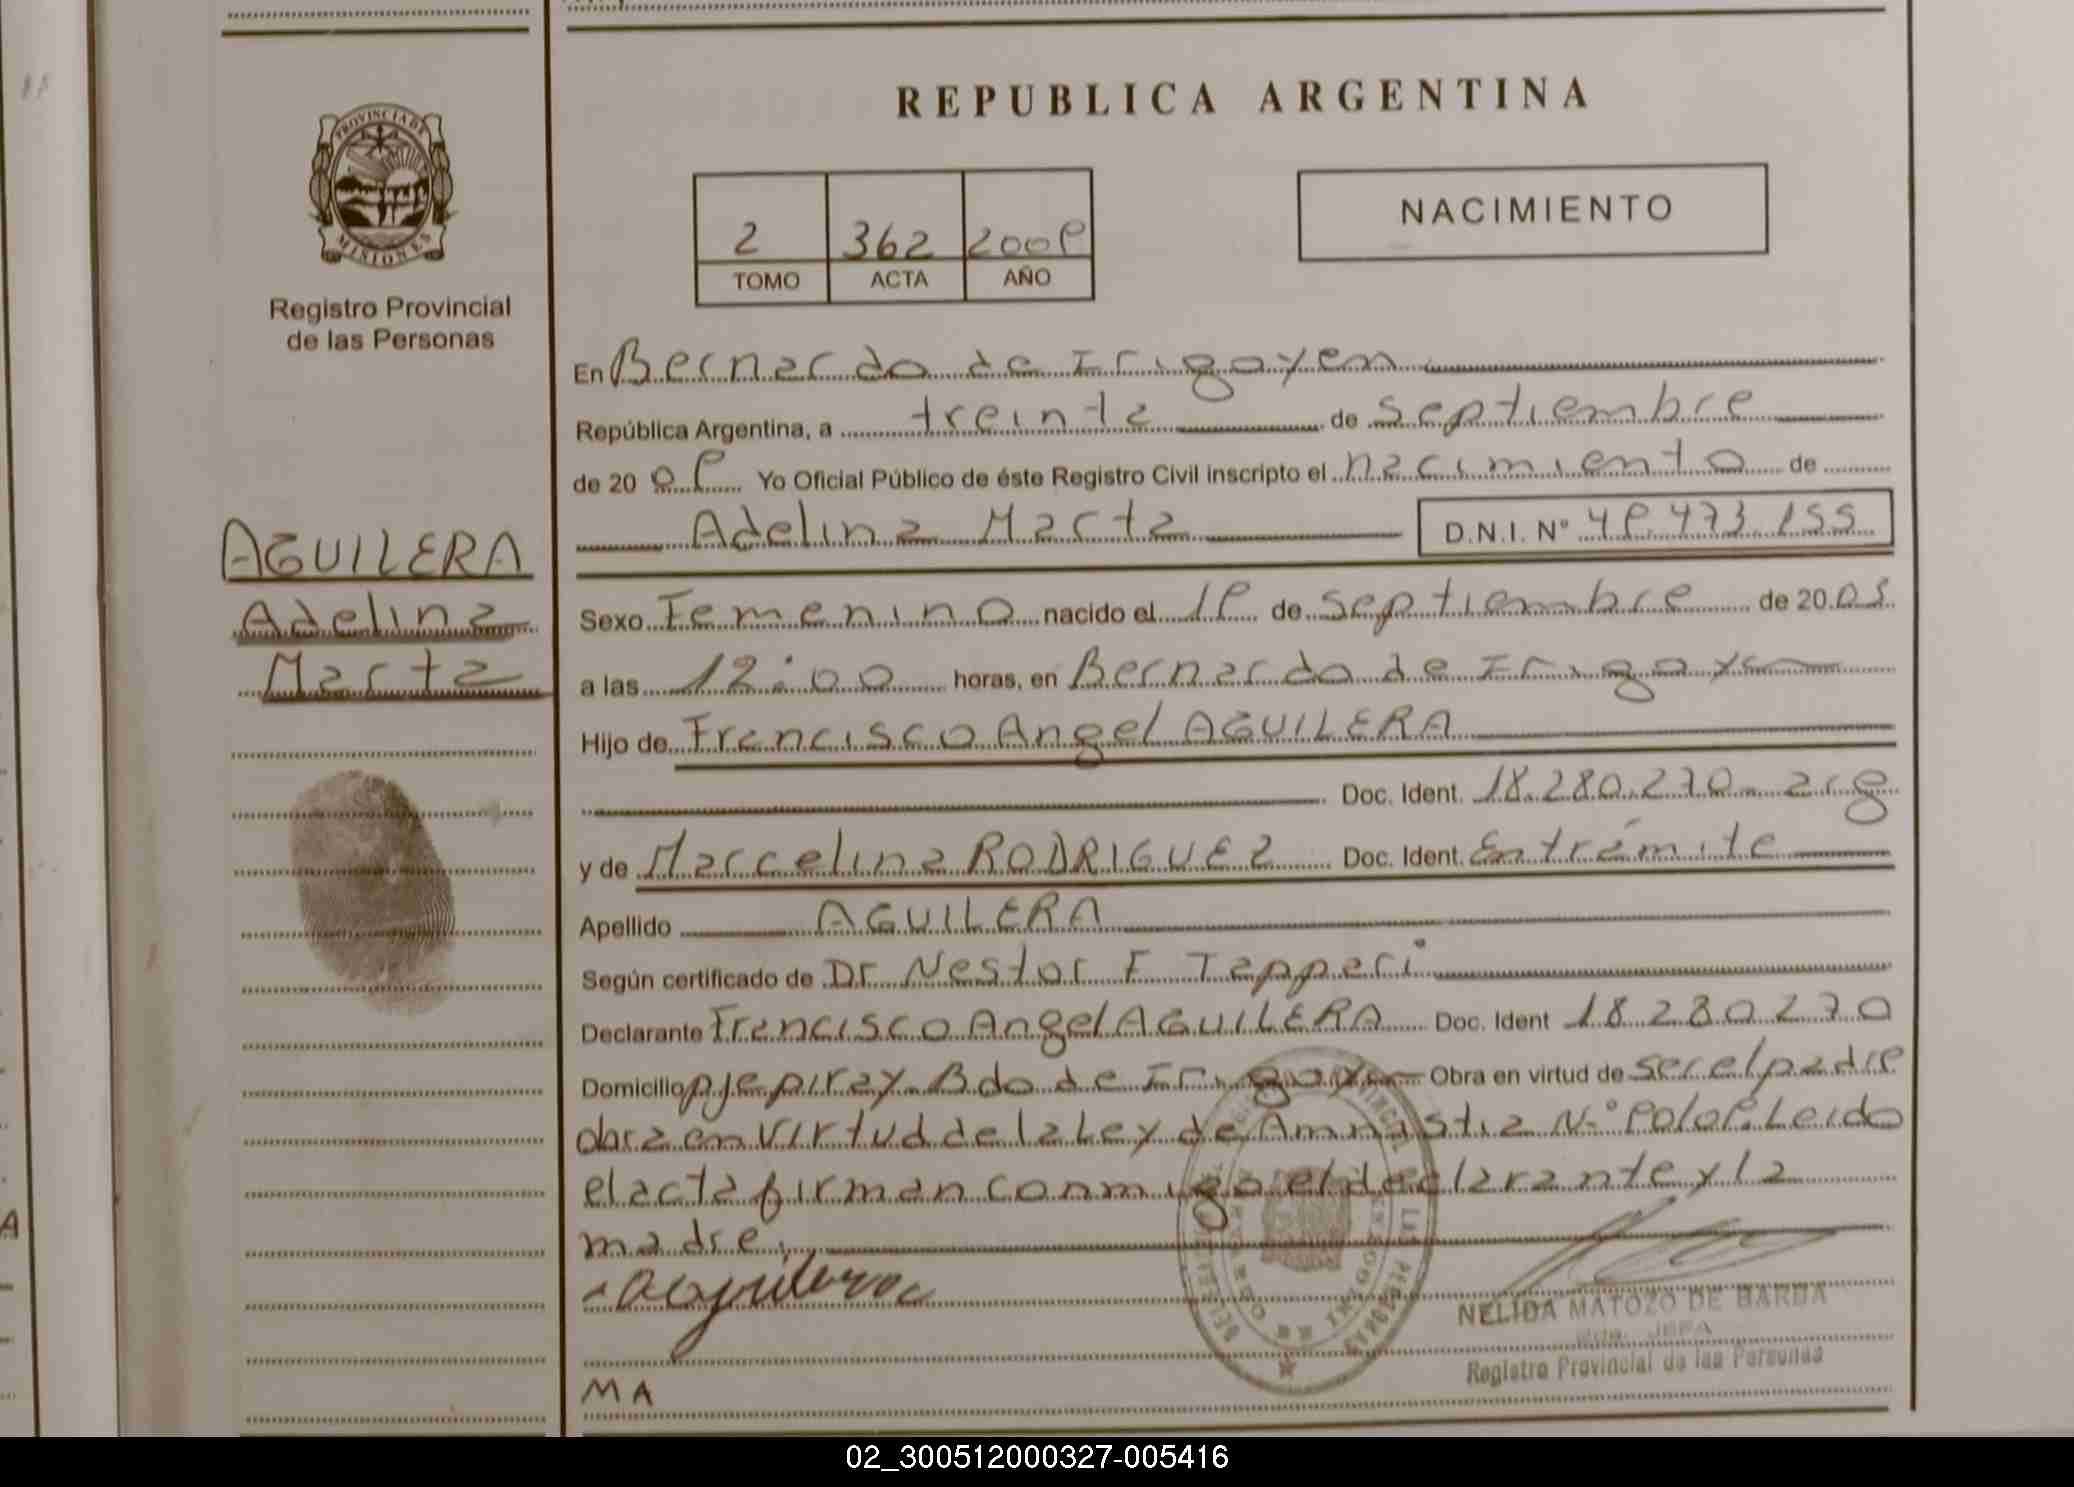 REPUBLICA ARGENTINA
PROVINCIA DE
MISIONES
Registro Provincial
de las Personas
2 362 2009
TOMO ACTA AÑO
NACIMIENTO
AGUILERA
Adelina
Marta
En Bernardo de Irigoyen
República Argentina, a treinta de septiembre
de 20 09 Yo Oficial Público de éste Registro Civil inscripto el nacimiento de
Adelina Marta D.N.I. Nº 49.473.155
Sexo Femenino nacido el 19 de septiembre de 20 05
a las 12:00 horas, en Bernardo de Irigoyen
Hijo de Francisco Angel AGUILERA
Doc. Ident. 18.280.270 - arg
y de Marcelina RODRIGUEZ Doc. Ident. Entrámite
Apellido AGUILERA
Según certificado de Dr Nestor F Tapperi
Declarante Francisco Angel AGUILERA Doc. Ident 18 280 270
Domicilio pje piray - Bdo de Irigoyen Obra en virtud de ser el padre
obra en virtud de la Ley de Amnistia N.º 90/09. Leido
el acta firman conmigo el declarante y la
madre.
Aguilera
NELIDA MATOZO DE BARDA
JEFA
Registro Provincial de las Personas
MA
02_300512000327-005416